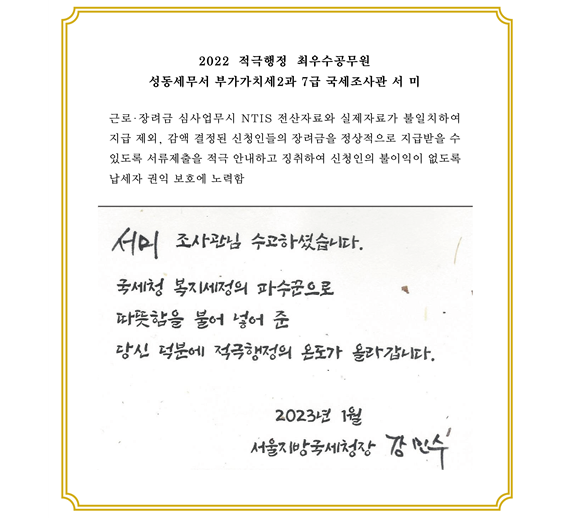 2022 적극행정 최우수공무원
성동세무서 부가가치세2과 7급 국세조사관 서 미
근로·장려금 심사업무시 NTIS 전산자료와 실제자료가 불일치하여
지급 제외, 감액 결정된 신청인들의 장려금을 정상적으로 지급받을 수
있도록 서류제출을 적극 안내하고 징취하여 신청인의 불이익이 없도록
납세자 권익 보호에 노력함
서미 조사관님 수고하셨습니다.
국세청 복지세정의 파수꾼으로
따뜻함을 불어 넣어 준
당신 덕분에 적극행정의 온도가 올라갑니다.
2023년 1월
서울지방국세청장 강민수